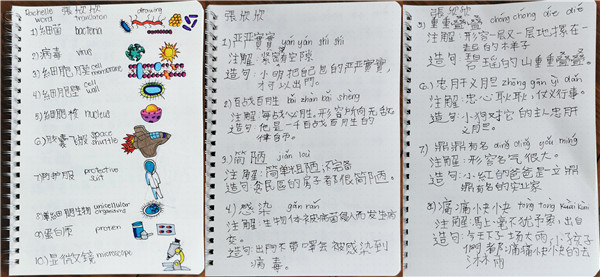 Rachelle 張欣欣
word translation drawing
1) 細菌 bacteria
2) 病毒 virus
3) 細胞膜 cell membrane
4) 細胞壁 cell wall
5) 細胞核 nucleus
6) 航天飛機 space shuttle
7) 防护服 protective suit
8) 单细胞生物 unicellular organisms
9) 蛋白质 protein
10) 显微镜 microscope
張欣欣
1) 严严實實 yán yán shí shí
注解: 紧密无隙
造句: 小明把自己包的严严實實,
才可以出門。
2) 百战百胜 bǎi zhàn bǎi shèng
注解: 每战必胜. 形容所向无敌
造句: 他是一个百战百胜的
律白币。
3) 简陋 jiǎn lòu
注解: 简单粗陋, 不完备
造句: 贫民區的房子都很简陋。
4) 感染 gǎn rǎn
注解: 生物体被病菌侵入而发生病
变。
造句: 出門不帶口罩会被感染到
病毒。
張欣欣
5) 重重叠叠 chóng chóng dié dié
注解: 形容一层又一层地摞在一
起的样子
造句: 碧瑶的山重重叠叠。
6) 忠肝义胆 zhōng gān yì dǎn
注解: 忠心耿耿, 仗义行事。
造句: 小狗对它的主人忠肝
义胆。
7) 鼎鼎有名 dǐng dǐng yǒu míng
注解: 形容名气很大。
造句: 小红的爸爸是一立鼎
鼎有名的实业家
8) 痛痛快快 tòng tòng kuài kuài
注解: 馬上, 毫不犹予象, 出自
造句: 今天下場大雨, 小孩子
們都痛痛快快的去
淋雨